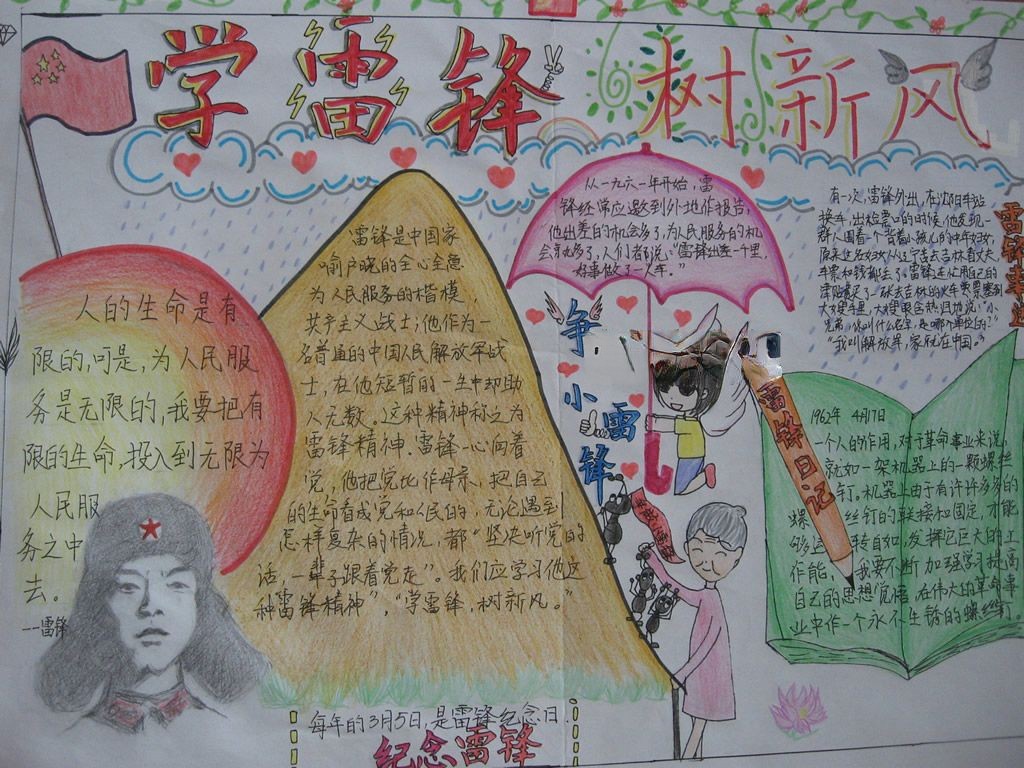 学雷锋 树新风
人的生命是有
限的,可是,为人民服
务是无限的,我要把有
限的生命,投入到无限为
人民服
务之中
去。
--雷锋
雷锋是中国家
喻户晓的全心全意
为人民服务的楷模,
共产主义战士;他作为一
名普通的中国人民解放军战
士,在他短暂的一生中却助
人无数。这种精神称之为
雷锋精神.雷锋一心向着
党,他把党比作母亲,把自己
的生命看成党和人民的,无论遇到
怎样复杂的情况,都“坚决听党的
话,一辈子跟着党走”。我们应学习他这
种雷锋精神”,“学雷锋,树新风。”
每年的3月5日,是雷锋纪念日
纪念雷锋
从一九六一年开始,雷
锋经常应邀到外地作报告,
他出差的机会多了,为人民服务的机
会就多了,人们都说:“雷锋出差一千里,
好事做了一火车。”
争小雷锋
雷锋事迹
有一次,雷锋外出,在沈阳车站
换车,出检票口的时候,他发现一
群人围着一个背着小孩儿的中年妇女,
原来这名妇女从辽宁去吉林看丈夫,
车票和钱都丢了。雷锋连忙用自己的
津贴费买了一张去吉林的火车票塞到
大嫂手里,大嫂眼含热泪地说:“小
兄弟,你叫什么名字,是哪个单位的?”
“我叫解放军,家就在中国。”
雷锋日记
1962年 4月17日
一个人的作用,对于革命事业来说,
就如一架机器上的一颗螺丝
钉。机器上由于有许许多多的
螺丝钉的联接和固定,才能
够运转自如,发挥它巨大的工
作能,我要不断加强学习提高
自己的思想觉悟,在伟大的革命事
业中作一个永不生锈的螺丝钉。